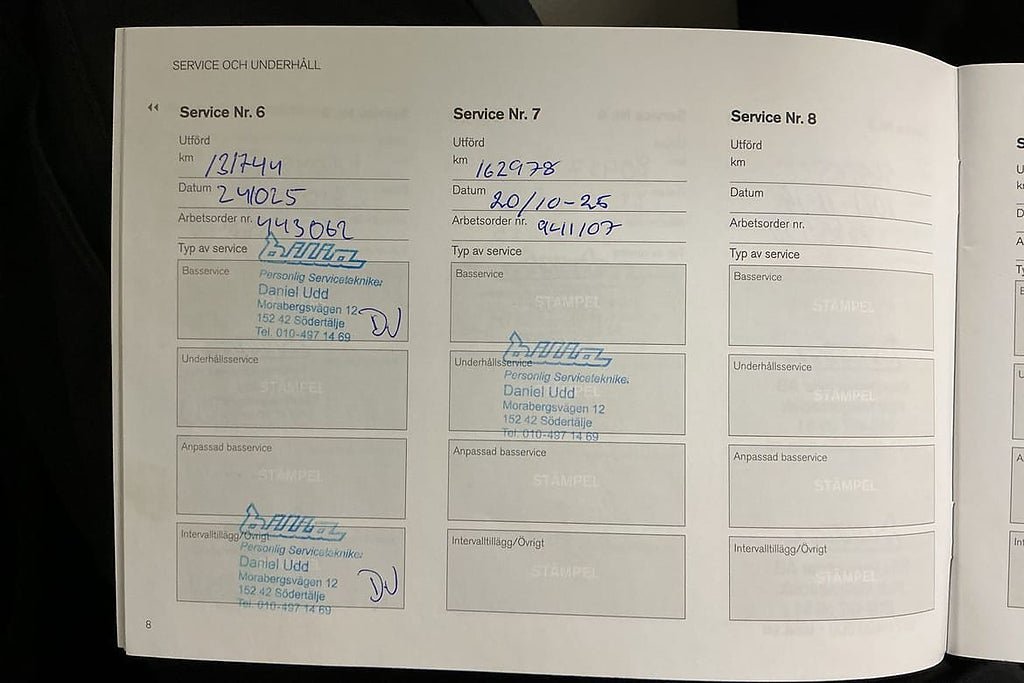 SERVICE OCH UNDERHÅLL
Service Nr. 6
Utförd
km 131744
Datum 241025
Arbetsorder nr. 443062
Typ av service
bilia
Basservice
Personlig Servicetekniker
Daniel Udd
Morabergsvägen 12
152 42 Södertälje
Tel. 010-497 14 69
DU
Underhållsservice
STÄMPEL
Anpassad basservice
STÄMPEL
bilia
Intervalltillägg/Övrigt
Personlig Servicetekniker
Daniel Udd
Morabergsvägen 12
152 42 Södertälje
Tel. 010-497 14 69
DU
8
Service Nr. 7
Utförd
km 162978
Datum 20/10-25
Arbetsorder nr. 941107
Typ av service
Basservice
STÄMPEL
bilia
Underhållsservice
Personlig Servicetekniker
Daniel Udd
Morabergsvägen 12
152 42 Södertälje
Tel. 010-497 14 69
Anpassad basservice
STÄMPEL
Intervalltillägg/Övrigt
STÄMPEL
Service Nr. 8
Utförd
km
Datum
Arbetsorder nr.
Typ av service
Basservice
STÄMPEL
Underhållsservice
STÄMPEL
Anpassad basservice
STÄMPEL
Intervalltillägg/Övrigt
STÄMPEL